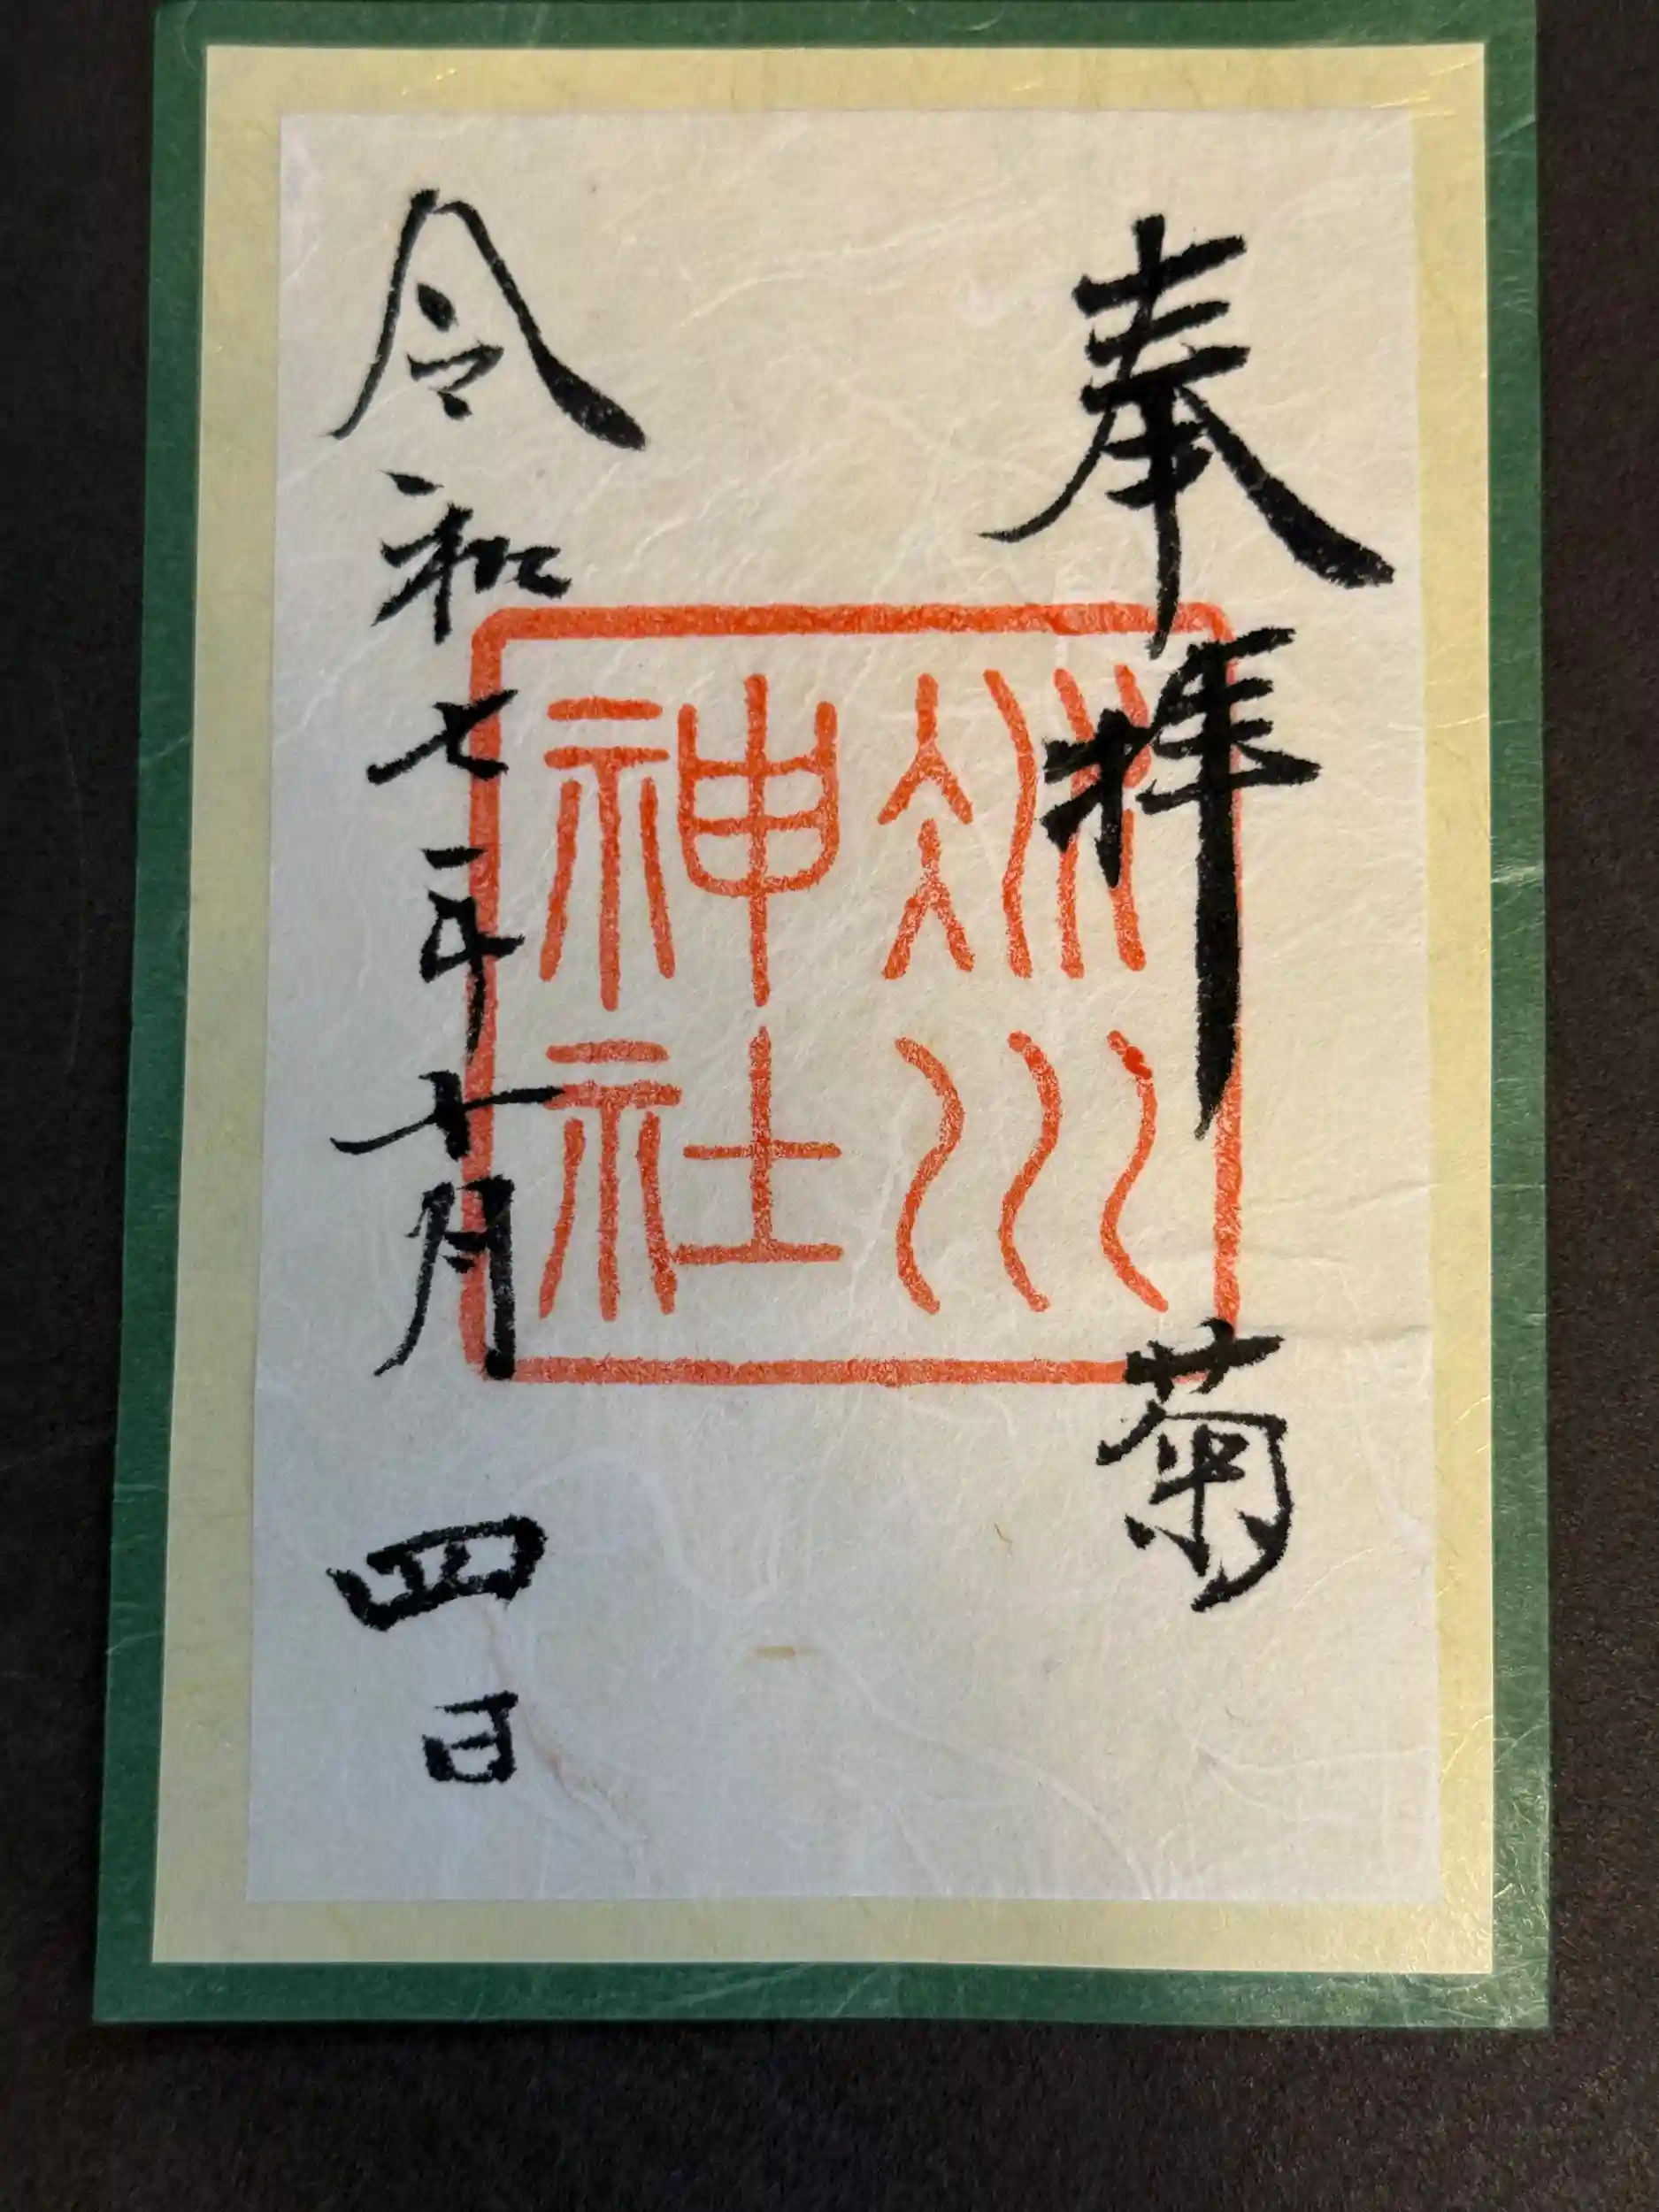 奉拝 菊
冰川
神社
令和七年十月四日